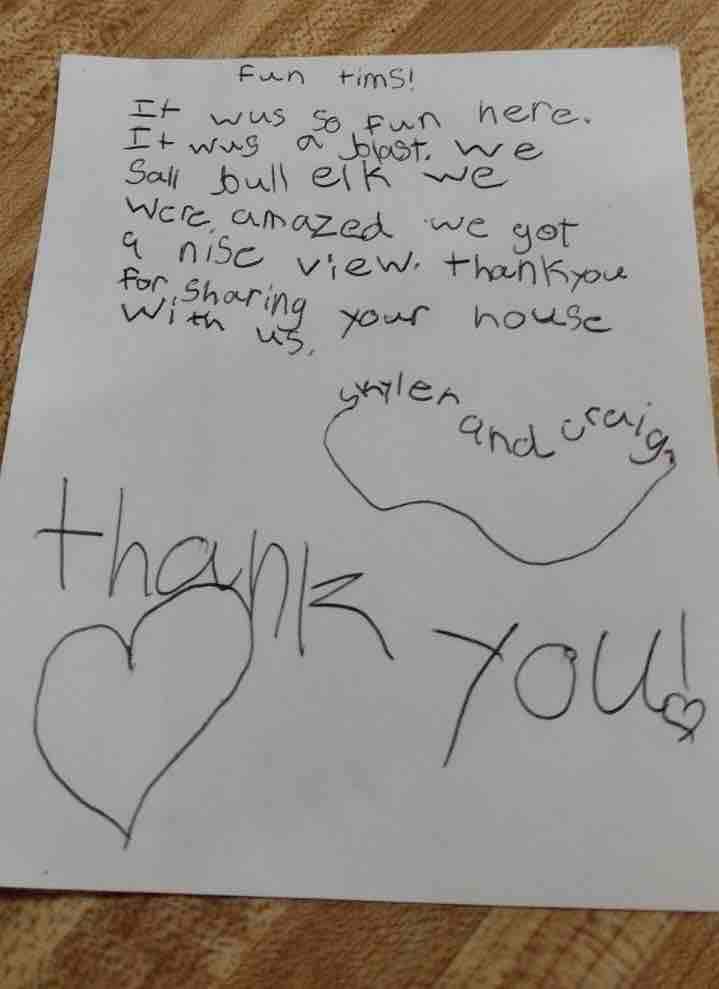 Fun tims!
It wus so fun here.
It wus a blast. we
Sall bull elk we
were amazed we got
a nise view. thankyou
for sharing your house
with us.
and craig.
thank you!